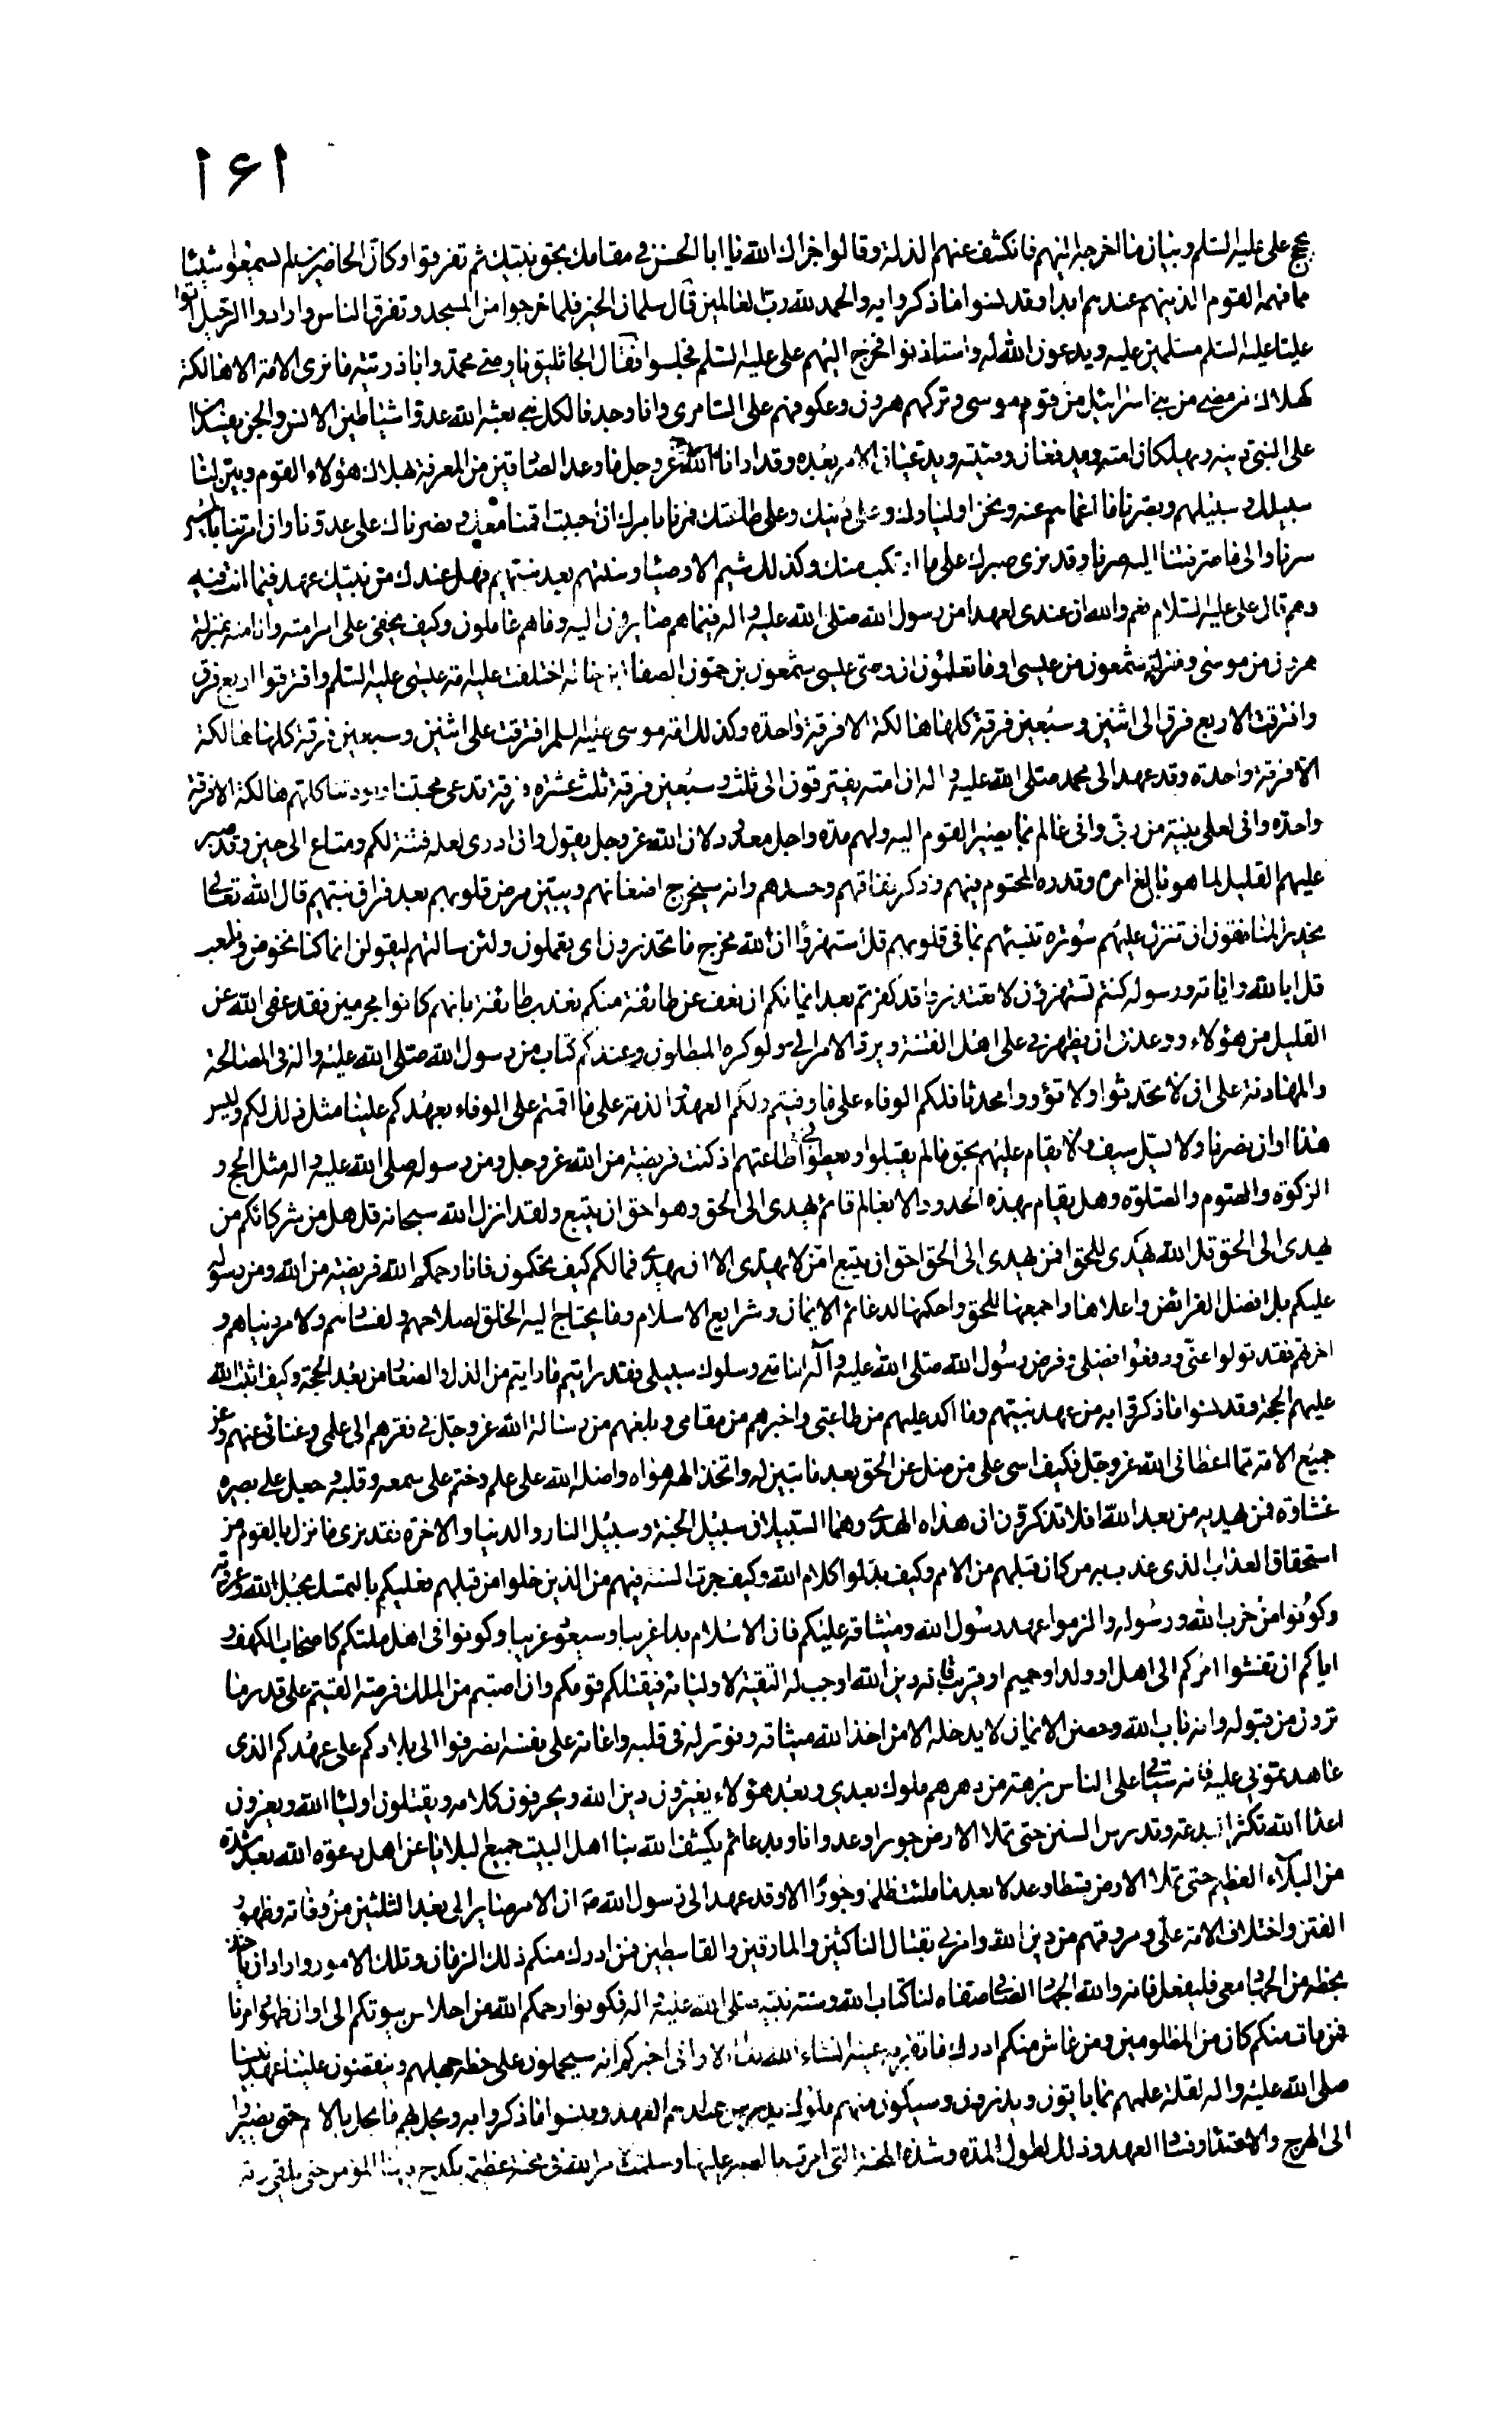 ١٤١
بحجج على عليه السلم وبيان ما اخرجه اليهم فانكشف عنهم الذلة وقالوا جزاك الله يا ابا الحسن في مقامك بحق نبيك ثم تفرقوا وكان الحاضرين لم يسمعوا شيئا
مما فهمه القوم الذين هم عندهم ابدا وقد نسوا ما ذكروا به والحمد لله رب العالمين قال سلمان الخير فلما خرجوا من المسجد وتفرق الناس وارادوا الرحيل اتوا
عليا عليه السلم مسلمين عليه ويدعون الله له واستاذنوا فخرج اليهم على عليه السلم فجلسوا فقال الجاثليق يا وصى محمد وابا ذريته ما نرى الامة الا هالكة
كهلاك من مضى من بنى اسرائيل من قوم موسى وتركهم هرون وعكوفهم على السامرى وانا وجدنا لكل نبى بعثه الله عدوا شياطين الانس والجن يفسدان
على النبي دينه ويهلكان امته ويدفعان وصيته ويدعيان الامر بعده وقد ارانا الله عز وجل ما وعد الصادقين من المعرفة بهلاك هؤلاء القوم وبين لنا
سبيلك وسبيلهم وبصرنا ما اعماهم عنه ونحن اولياؤك وعلى دينك وعلى طاعتك فمرنا بامرك ان احببت اقمنا معك ونصرناك على عدونا وان امرتنا بالمسير
سرنا والى ما صرفتنا اليه صرنا وقد نرى صبرك على ما ارتكب منك وكذلك شيم الاوصياء وسنتهم بعد نبيهم فهل عندك من نبيك عهد فيما انت فيه
وهم قال على عليه السلام نعم والله ان عندى لعهدا من رسول الله صلى الله عليه واله فيما هم صايرون اليه وما هم عاملون وكيف يخفى على امر امته وانا منه بمنزلة
هرون من موسى ومنزلة شمعون من عيسى اوما تعلمون ان وصى عيسى شمعون بن حمون الصفا ابن خاله اختلفت عليه امة عيسى عليه السلم وافترقوا اربع فرق
وافترقت الاربع فرق الى اثنين وسبعين فرقة كلها هالكة الا فرقة واحدة وكذلك امة موسى عليه السلم افترقت على اثنين وسبعين فرقة كلها هالكة
الا فرقة واحدة وقد عهد الى محمد صلى الله عليه واله ان امته يفترقون الى ثلث وسبعين فرقة ثلث عشرة فرقة تدعى محبتنا ومودتنا كلهم هالكة الا فرقة
واحدة وانى لعلى بينة من ربى وانى عالم بما يصير القوم اليه ولهم مدة واجل معدود لان الله عز وجل يقول وان ادرى لعله فتنة لكم ومتاع الى حين وقد صبر
عليهم القليل لما هو بالغ امره وقدره المحتوم فيهم وذكر نفاقهم وحسدهم وانه سيخرج اضغانهم ويبين مرض قلوبهم بعد فراق نبيهم قال الله تعالى
يحذر المنافقون ان تنزل عليهم سورة تنبئهم بما فى قلوبهم قل استهزؤا ان الله مخرج ما تحذرون اى يعملون ولئن سالتهم ليقولن انما كنا نخوض ونلعب
قل ابالله واياته ورسوله كنتم تستهزؤن لا تعتذروا قد كفرتم بعد ايمانكم ان نعف عن طائفة منكم نعذب طائفة بانهم كانوا مجرمين فقد عفى الله عن
القليل من هؤلاء ووعدنى ان يظهرنى على اهل الفتنة ويرد الامر الى ولو كره المبطلون وعندكم كتاب من رسول الله صلى الله عليه واله فى المصالحة
والمهادنة على ان لا تحدثوا ولا تؤووا محدثا فلكم الوفاء على ما وفيتم ولكم العهد والذمة على ما اقمتم على الوفاء بعهدكم علينا مثل ذلك لكم وليس
هذا اوان نصرنا ولا يسل سيف ولا يقام عليهم بحق ما لم يقبلوا ويعطونى طاعتهم اذ كنت فريضة من الله عز وجل ومن رسوله صلى الله عليه واله مثل الحج و
الزكوة والصوم والصلوة وهل يقام بهذه الحدود الا بعالم قائم يهدى الى الحق وهو احق ان يتبع ولقد انزل الله سبحانه قل هل من شركائكم من
يهدى الى الحق قل الله يهدى للحق افمن يهدى الى الحق احق ان يتبع امن لا يهدى الا ان يهدى فما لكم كيف تحكمون فانا رحمكم الله فريضة من الله ومن رسوله
عليكم بل افضل الفرائض واعلاها واجمعها للحق واحكمها لدعائم الايمان وشرايع الاسلام وما يحتاج اليه الخلق لصلاحهم ولفسادهم ولامر دنياهم و
اخرتهم فقد تولوا عنى ودفعوا فضلى وفرض رسول الله صلى الله عليه وآله امامتى وسلوك سبيلى فقد رايتم ما رايتم من الذل والصغار من بعد الحجة وكيف اثبت الله
عليهم الحجة وقد نسوا ما ذكروا به من عهد نبيهم وما اكد عليهم من طاعتى واخبرهم من مقامى وبلغهم من رسالة الله عز وجل فى فقرهم الى علمى وغنائى عنهم وعن
جميع الامة مما اعطانى الله عز وجل فكيف اسى على من ضل عن الحق بعد ما تبين له واتخذ الهه هواه واضله الله على علم وختم على سمعه وقلبه وجعل على بصره
غشاوة فمن يهديه من بعد الله افلا تذكرون ان هداه الهدى وهما السبيلان سبيل الجنة وسبيل النار والدنيا والاخرة فقد نرى ما نزل بالقوم من
استحقاق العذاب الذى عذب به من كان قبلهم من الامم وكيف بدلوا كلام الله وكيف جرت السنة فيهم من الذين خلوا من قبلهم فعليكم بالتمسك بحبل الله وعروته
وكونوا من حزب الله ورسوله والزموا عهد رسول الله وميثاقه عليكم فان الاسلام بدا غريبا وسيعود غريبا وكونوا فى اهل ملتكم كاصحاب الكهف و
اياكم ان تفشوا امركم الى اهل او ولد او حميم او قريب فانه دين الله اوجب له التقية لاوليائه فيقتلكم قومكم وان اصبتم من الملك فرصة القيتم على قدر ما
ترون من قبوله وانه باب الله وحصن الايمان لا يدخله الا من اخذ الله ميثاقه ونور له فى قلبه واعانه على نفسه انصرفوا الى بلادكم على عهدكم الذى
عاهدتمونى عليه فانه سياتى على الناس برهة من دهرهم ملوك بعدى وبعد هؤلاء يغيرون دين الله ويحرفون كلامه ويقتلون اولياء الله ويعزون
اعداء الله تكثر البدعة وتدرس السنن حتى تملا الارض جورا وعدوانا وبدعا ثم يكشف الله بنا اهل البيت جميع البلايا عن اهل دعوة الله بعد شدة
من البلاء العظيم حتى تملا الارض قسطا وعدلا بعد ما ملئت ظلما وجورا الا وقد عهد الى رسول الله ص ان الامر صاير الى بعد الثلثين من وفاته وظهور
الفتن واختلاف الامة على ومروقهم من دين الله وامرنى بقتال الناكثين والمارقين والقاسطين فمن ادرك منكم ذلك الزمان وتلك الامور واراد ان ياخذ
بحظه من الجهاد معى فليفعل فانه والله الجهاد الصافى صفاه لنا كتاب الله وسنة نبيه صلى الله عليه واله فكونوا رحمكم الله من احلاس بيوتكم الى اوان ظهور امرنا
فمن مات منكم كان من المظلومين ومن عاش منكم ادرك ما تقر به عينه انشاء الله تعالى الا وانى اخبركم انه سيحملون على خطة جهلهم وينقضون علينا عهد نبينا
صلى الله عليه واله لقلة علمهم بما ياتون ويذرون وسيكون منهم ملوك يدرس عندهم العهد وينسوا ما ذكروا به ويحل بهم ما يحل بالامم حتى يصيروا
الى الهرج والاعتداء وفساد العهد وذلك لطول المدة وشدة المحنة التى امرت بالصبر عليها وسلمت لامر الله فى محنة عظيمة يكدح فيها المؤمن حتى يلقى ربه